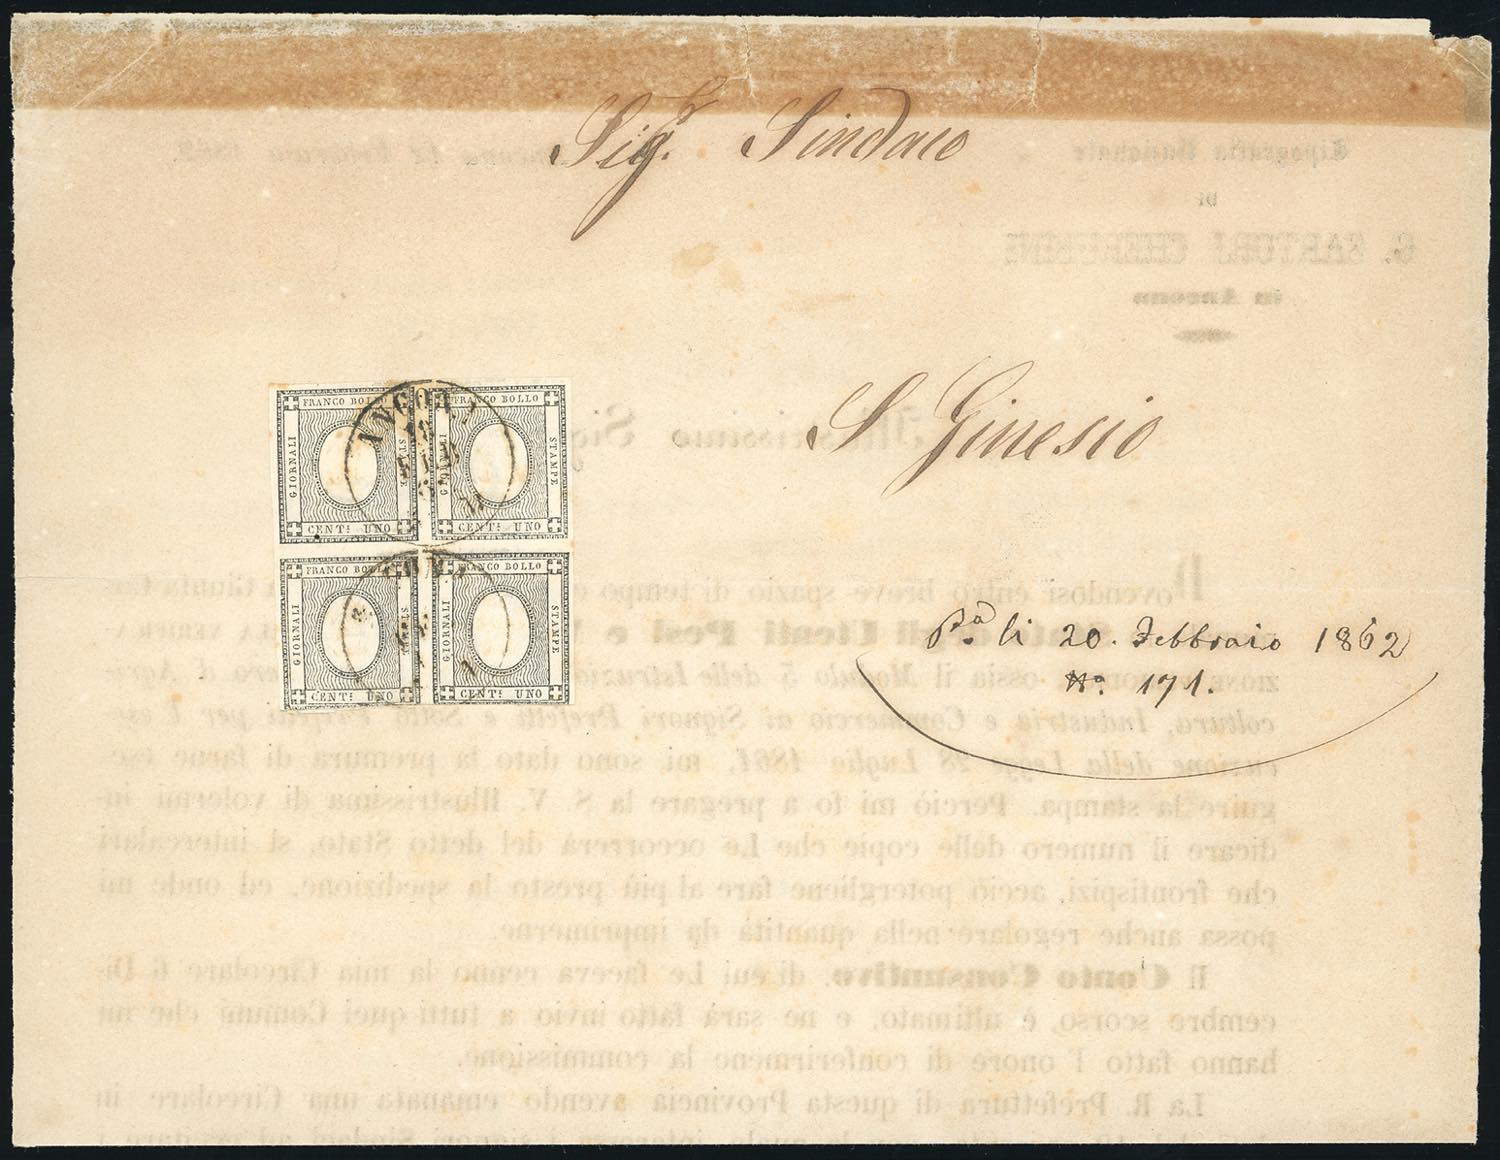 Sig.r Sindaco
S Ginesio
P.a li 20. Febbraio 1862
No. 171.
FRANCO BOLLO
GIORNALI
STAMPE
CENT: UNO
FRANCO BOLLO
GIORNALI
STAMPE
CENT: UNO
FRANCO BOLLO
GIORNALI
CENT: UNO
FRANCO BOLLO
GIORNALI
STAMPE
CENT: UNO
Tipografia Nazionale
DI
G. SARTORJ CHERUBINI
in Ancona
Illustrissimo Sig
Dovendosi entro breve spazio di tempo
Stato degli Utenti Pesi e
ossia il Modulo 5 delle Istruzio
coltura, Industria e Commercio ai Signori Prefetti e Sotto Prefetti per l' ese-
cuzione della Legge 28 Luglio 1861, mi sono dato la premura di farne ese-
guire la stampa. Perciò mi fo a pregare la S. V. Illustrissima di volermi in-
dicare il numero delle copie che Le occorrerà del detto Stato, sì intercalari
che frontispizi, acciò potergliene fare al più presto la spedizione, ed onde mi
possa anche regolare nella quantità da imprimerne.
Il Conto Consuntivo, di cui Le faceva cenno la mia Circolare 6 Di-
cembre scorso, è ultimato, e ne sarà fatto invio a tutti quei Comuni che mi
hanno fatto l' onore di conferirmene la commissione.
La R. Prefettura di questa Provincia avendo emanata una Circolare in